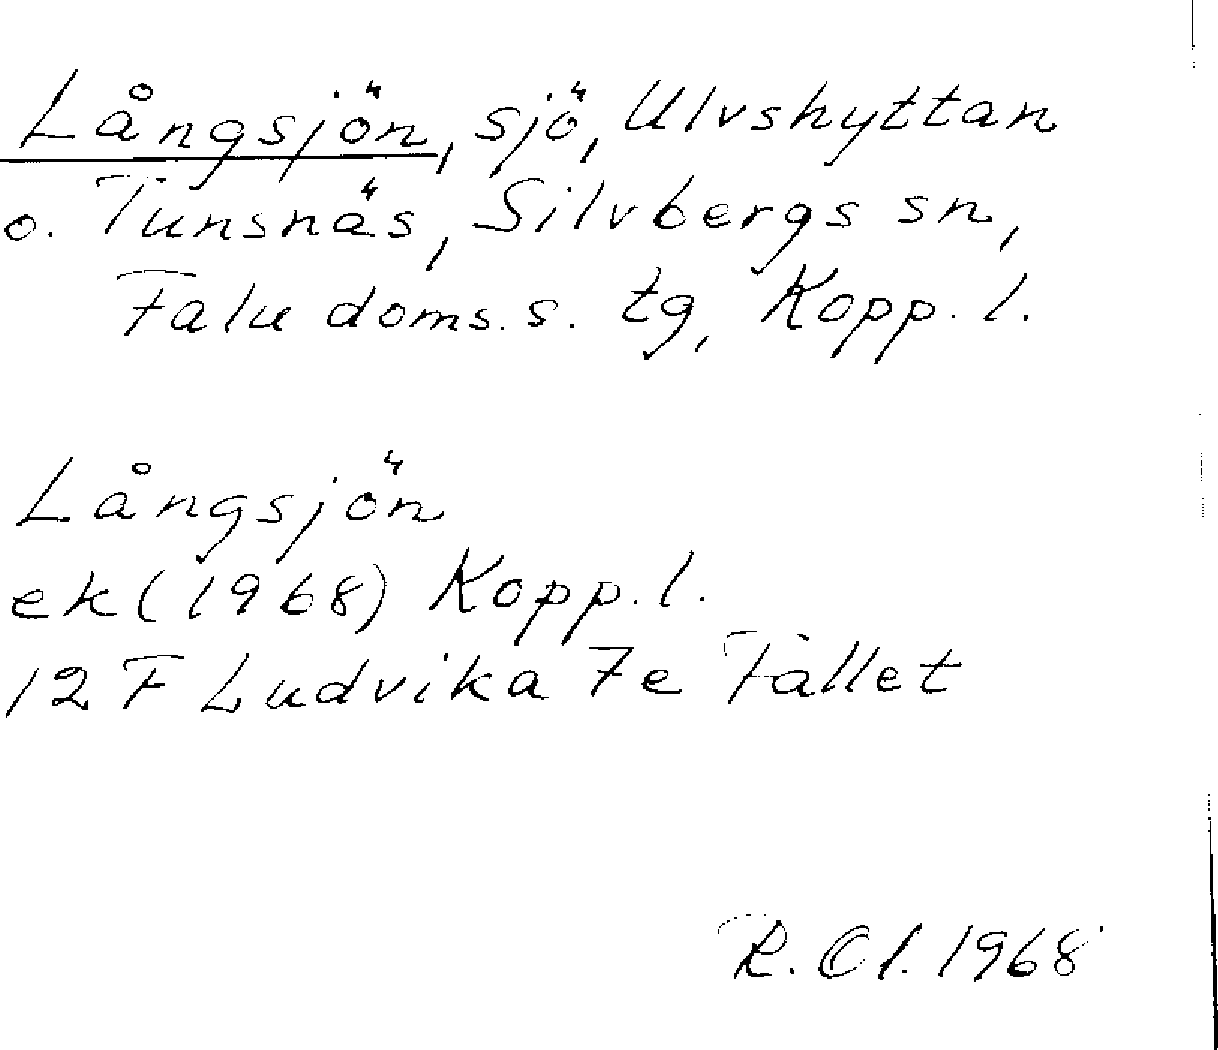 Långsjön, sjö, Ulvshyttan
o. Tunsnäs, Silvbergs sn,
Falu doms. s. tg, Kopp. l.
Långsjön
ek (1968) Kopp. l.
12 F Ludvika 7e Fallet
R. Ol. 1968